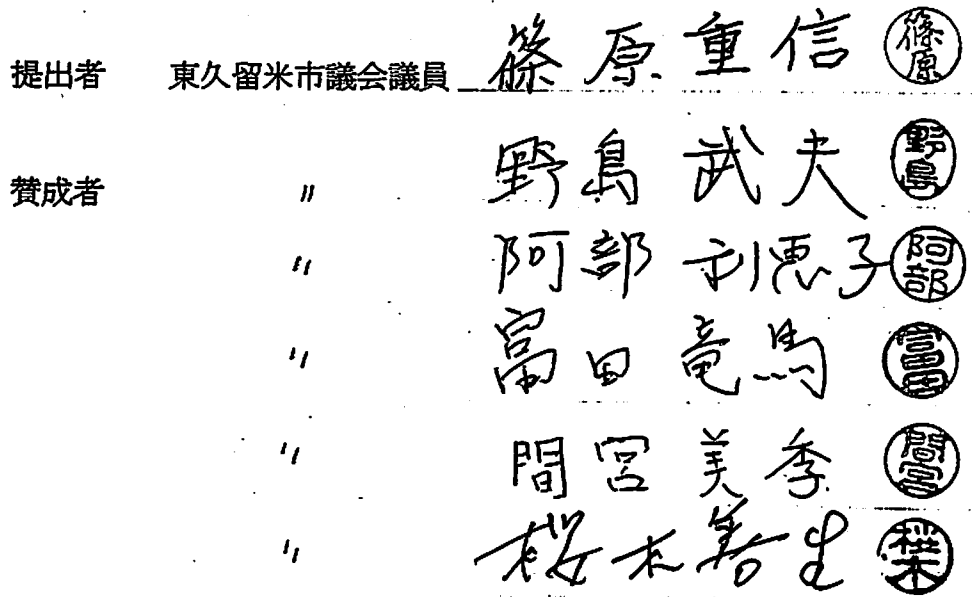 提出者 東久留米市議会議員 篠原重信 篠原
賛成者 〃 野島武夫 野島
〃 阿部利恵子 阿部
〃 富田竜馬 富田
〃 間宮美季 間宮
〃 桜木善生 桜木